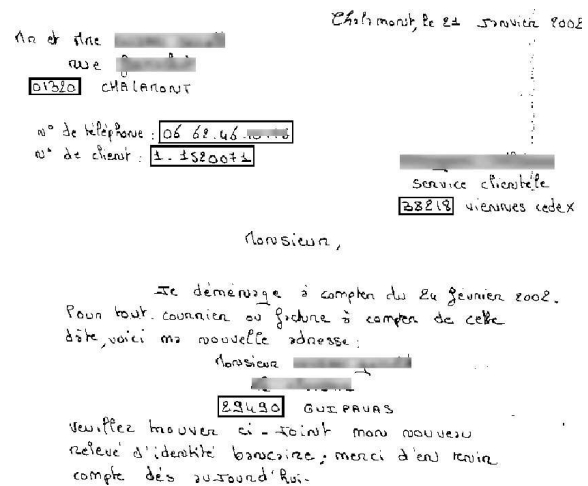 Mr et Mme
Chalamont, le 21 Janvier 2002
rue
01320 CHALAMONT
N° de téléphone : 06 62.46.
N° de client : 1.1520071
Service clientèle
38218 Viennes cedex
Monsieur,
Je déménage à compter du 24 février 2002.
Pour tout courrier ou facture à compter de cette
date, voici ma nouvelle adresse :
Monsieur
29490 GUIPAVAS
Veuillez trouver ci-joint mon nouveau
relevé d'identité bancaire ; merci d'en tenir
compte dès aujourd'hui.